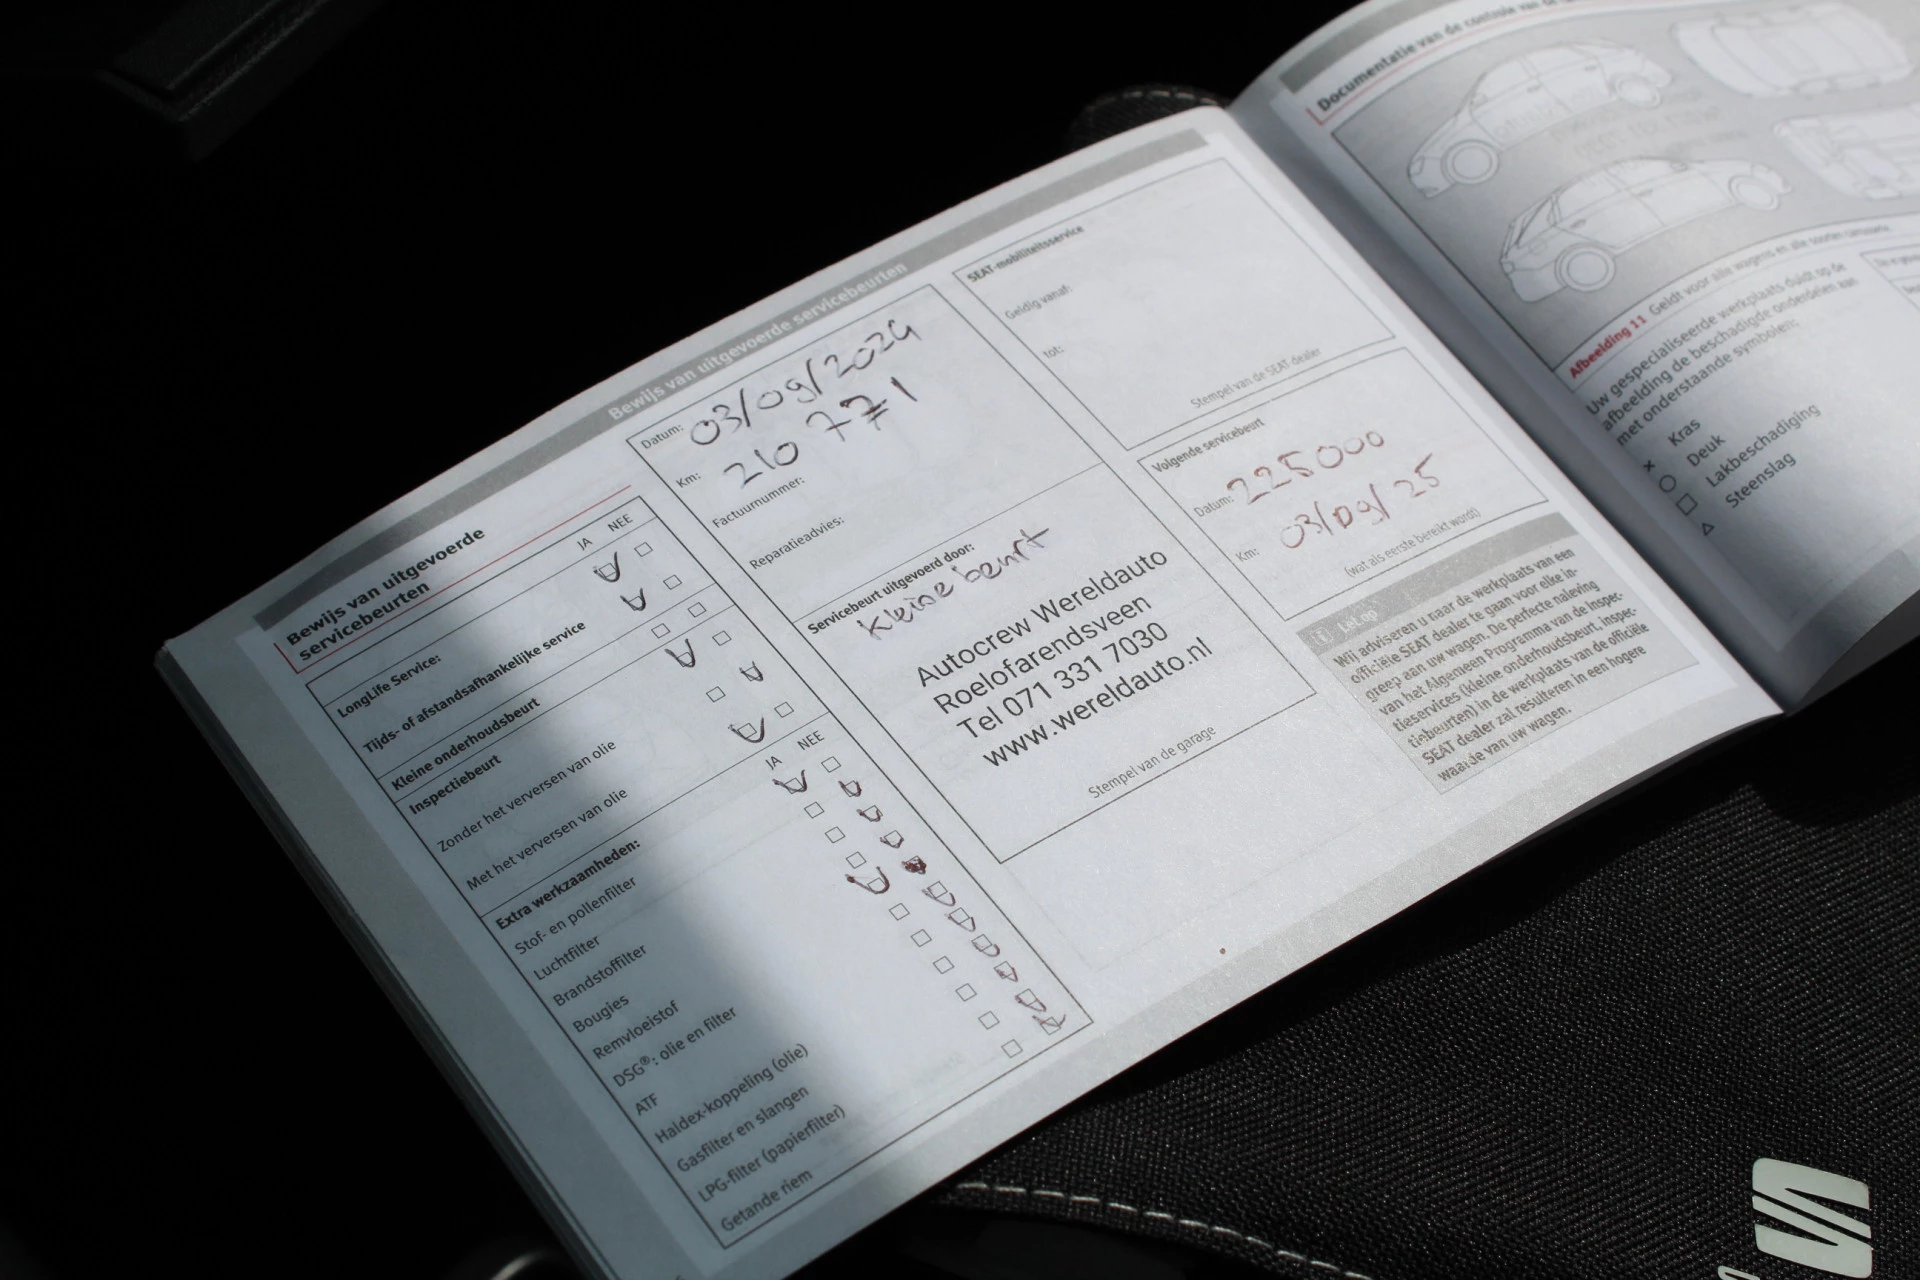 Bewijs van uitgevoerde servicebeurten
Bewijs van uitgevoerde
servicebeurten
JA NEE
LongLife Service:
Tijds- of afstandsafhankelijke service
Kleine onderhoudsbeurt
Inspectiebeurt
Zonder het verversen van olie
Met het verversen van olie
Extra werkzaamheden:
JA NEE
Stof- en pollenfilter
Luchtfilter
Brandstoffilter
Bougies
Remvloeistof
DSG®: olie en filter
ATF
Haldex-koppeling (olie)
Gasfilter en slangen
LPG-filter (papierfilter)
Getande riem
Datum: 03/09/2024
Km: 210 771
Factuurnummer:
Reparatieadvies:
Servicebeurt uitgevoerd door:
Kleine beurt
Autocrew Wereldauto
Roelofarendsveen
Tel 071 331 7030
www.wereldauto.nl
Stempel van de garage
SEAT-mobiliteitsservice
Geldig vanaf:
tot:
Stempel van de SEAT dealer
Volgende servicebeurt
Datum: 225000
Km: 03/09/25
(wat als eerste bereikt wordt)
Let op
Wij adviseren u naar de werkplaats van een
officiële SEAT dealer te gaan voor elke in-
greep aan uw wagen. De perfecte naleving
van het Algemeen Programma van de inspec-
tieservices (kleine onderhoudsbeurt, inspec-
tiebeurten) in de werkplaats van de officiële
SEAT dealer zal resulteren in een hogere
waarde van uw wagen.
Documentatie van de controle van de
Afbeelding 11 Geldt voor alle wagens en alle soorten carrosserie.
Uw gespecialiseerde werkplaats duidt op de
afbeelding de beschadigde onderdelen aan
met onderstaande symbolen:
× Kras
Deuk
Lakbeschadiging
Steenslag